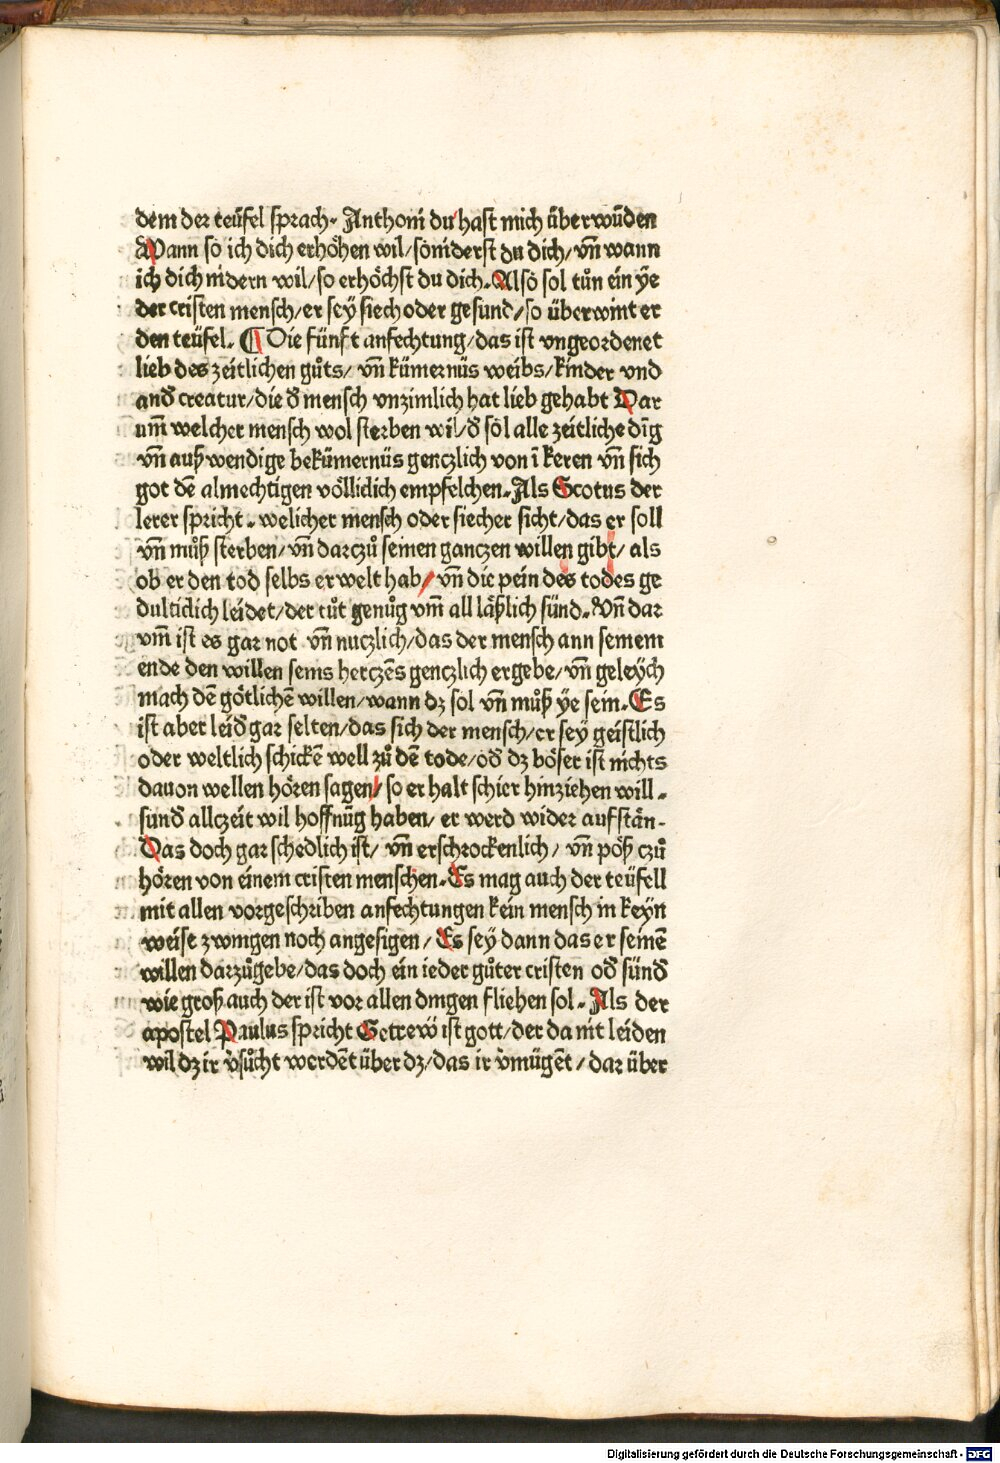 dem der teüfel sprach. Anthoni du hast mich überwūden
Wann so ich dich erhöhen wil/ so niderst du dich/ vn̄ wann
ich dich nidern wil/ so erhöchst du dich. Also sol tůn ein ye
der cristen mensch/ er sey siech oder gesund/ so überwint er
den teüfel. ¶ Die fünft anfechtung/ das ist vngeordenet
lieb des zeitlichen gůts/ vn̄ kümernüs weibs/ kinder vnd
and̄ creatur/ die d̄ mensch vnzimlich hat lieb gehabt Dar
um̄ welcher mensch wol sterben wil/ d̄ sol alle zeitliche dīg
vn̄ auß wendige bekümernüs genczlich von ī keren vn̄ sich
got dē almechtigen völlidich empfelchen. Als Scotus der
lerer spricht. welicher mensch oder siecher sicht/ das er soll
vn̄ můß sterben/ vn̄ darczů seinen ganczen willen gibt/ als
ob er den tod selbs erwelt hab/ vn̄ die pein des todes ge
dultidich leidet/ der tůt genůg vm̄ all läßlich sünd. Vn̄ dar
vm̄ ist es gar not vn̄ nuczlich/ das der mensch ann seinem
ende den willen seins herczēs genczlich ergebe/ vn̄ geleych
mach dē götlichē willen/ wann dz sol vn̄ můß ye sein. Es
ist aber leid̄ gar selten/ das sich der mensch/ er sey geistlich
oder weltlich schickē well zů dē tode/ od̄ dz böser ist nichts
dauon wellen hören sagen/ so er halt schier hinziehen will.
sund̄ allczeit wil hoffnūg haben/ er werd wider aufstän.
Das doch gar schedlich ist/ vn̄ erschrockenlich/ vn̄ pöß czů
hören von einem cristen menschen. Es mag auch der teüfell
mit allen vorgeschriben anfechtungen kein mensch in keyn
weise zwingen noch angesigen/ Es sey dann das er seinē
willen darzůgebe/ das doch ein ieder gůter cristen od̄ sünd̄
wie groß auch der ist vor allen dingen fliehen sol. Als der
apostel Paulus spricht Getrew̄ ist gott/ der da nit leiden
wil dz ir v̓sůcht werdēt über dz/ das ir v̓mügēt/ dar über
Digitalisierung gefördert durch die Deutsche Forschungsgemeinschaft - DFG